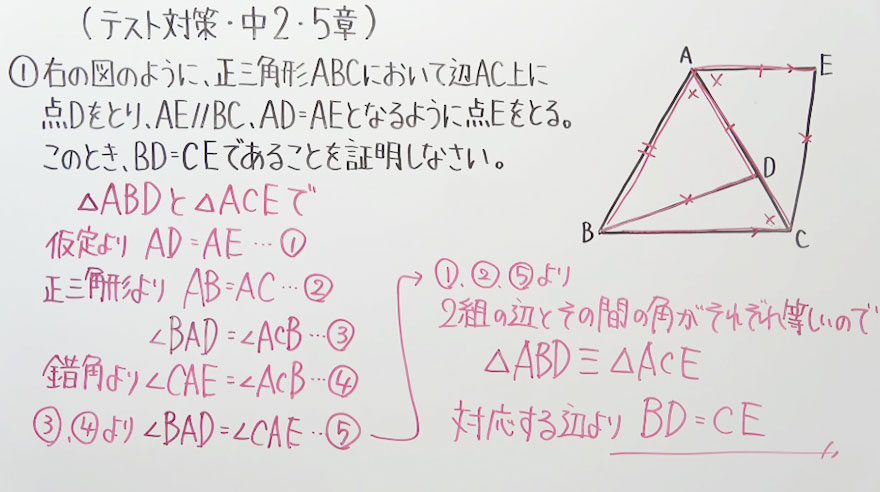 (テスト対策・中2・5章)
①右の図のように、正三角形ABCにおいて辺AC上に
点Dをとり、AE//BC、AD=AEとなるように点Eをとる。
このとき、BD=CEであることを証明しなさい。
△ABDと△ACEで
仮定より AD=AE…①
正三角形より AB=AC…②
∠BAD=∠ACB…③
錯角より∠CAE=∠ACB…④
③、④より∠BAD=∠CAE…⑤
①、②、⑤より
2組の辺とその間の角がそれぞれ等しいので
△ABD≡△ACE
対応する辺より BD=CE
A
E
D
B
C